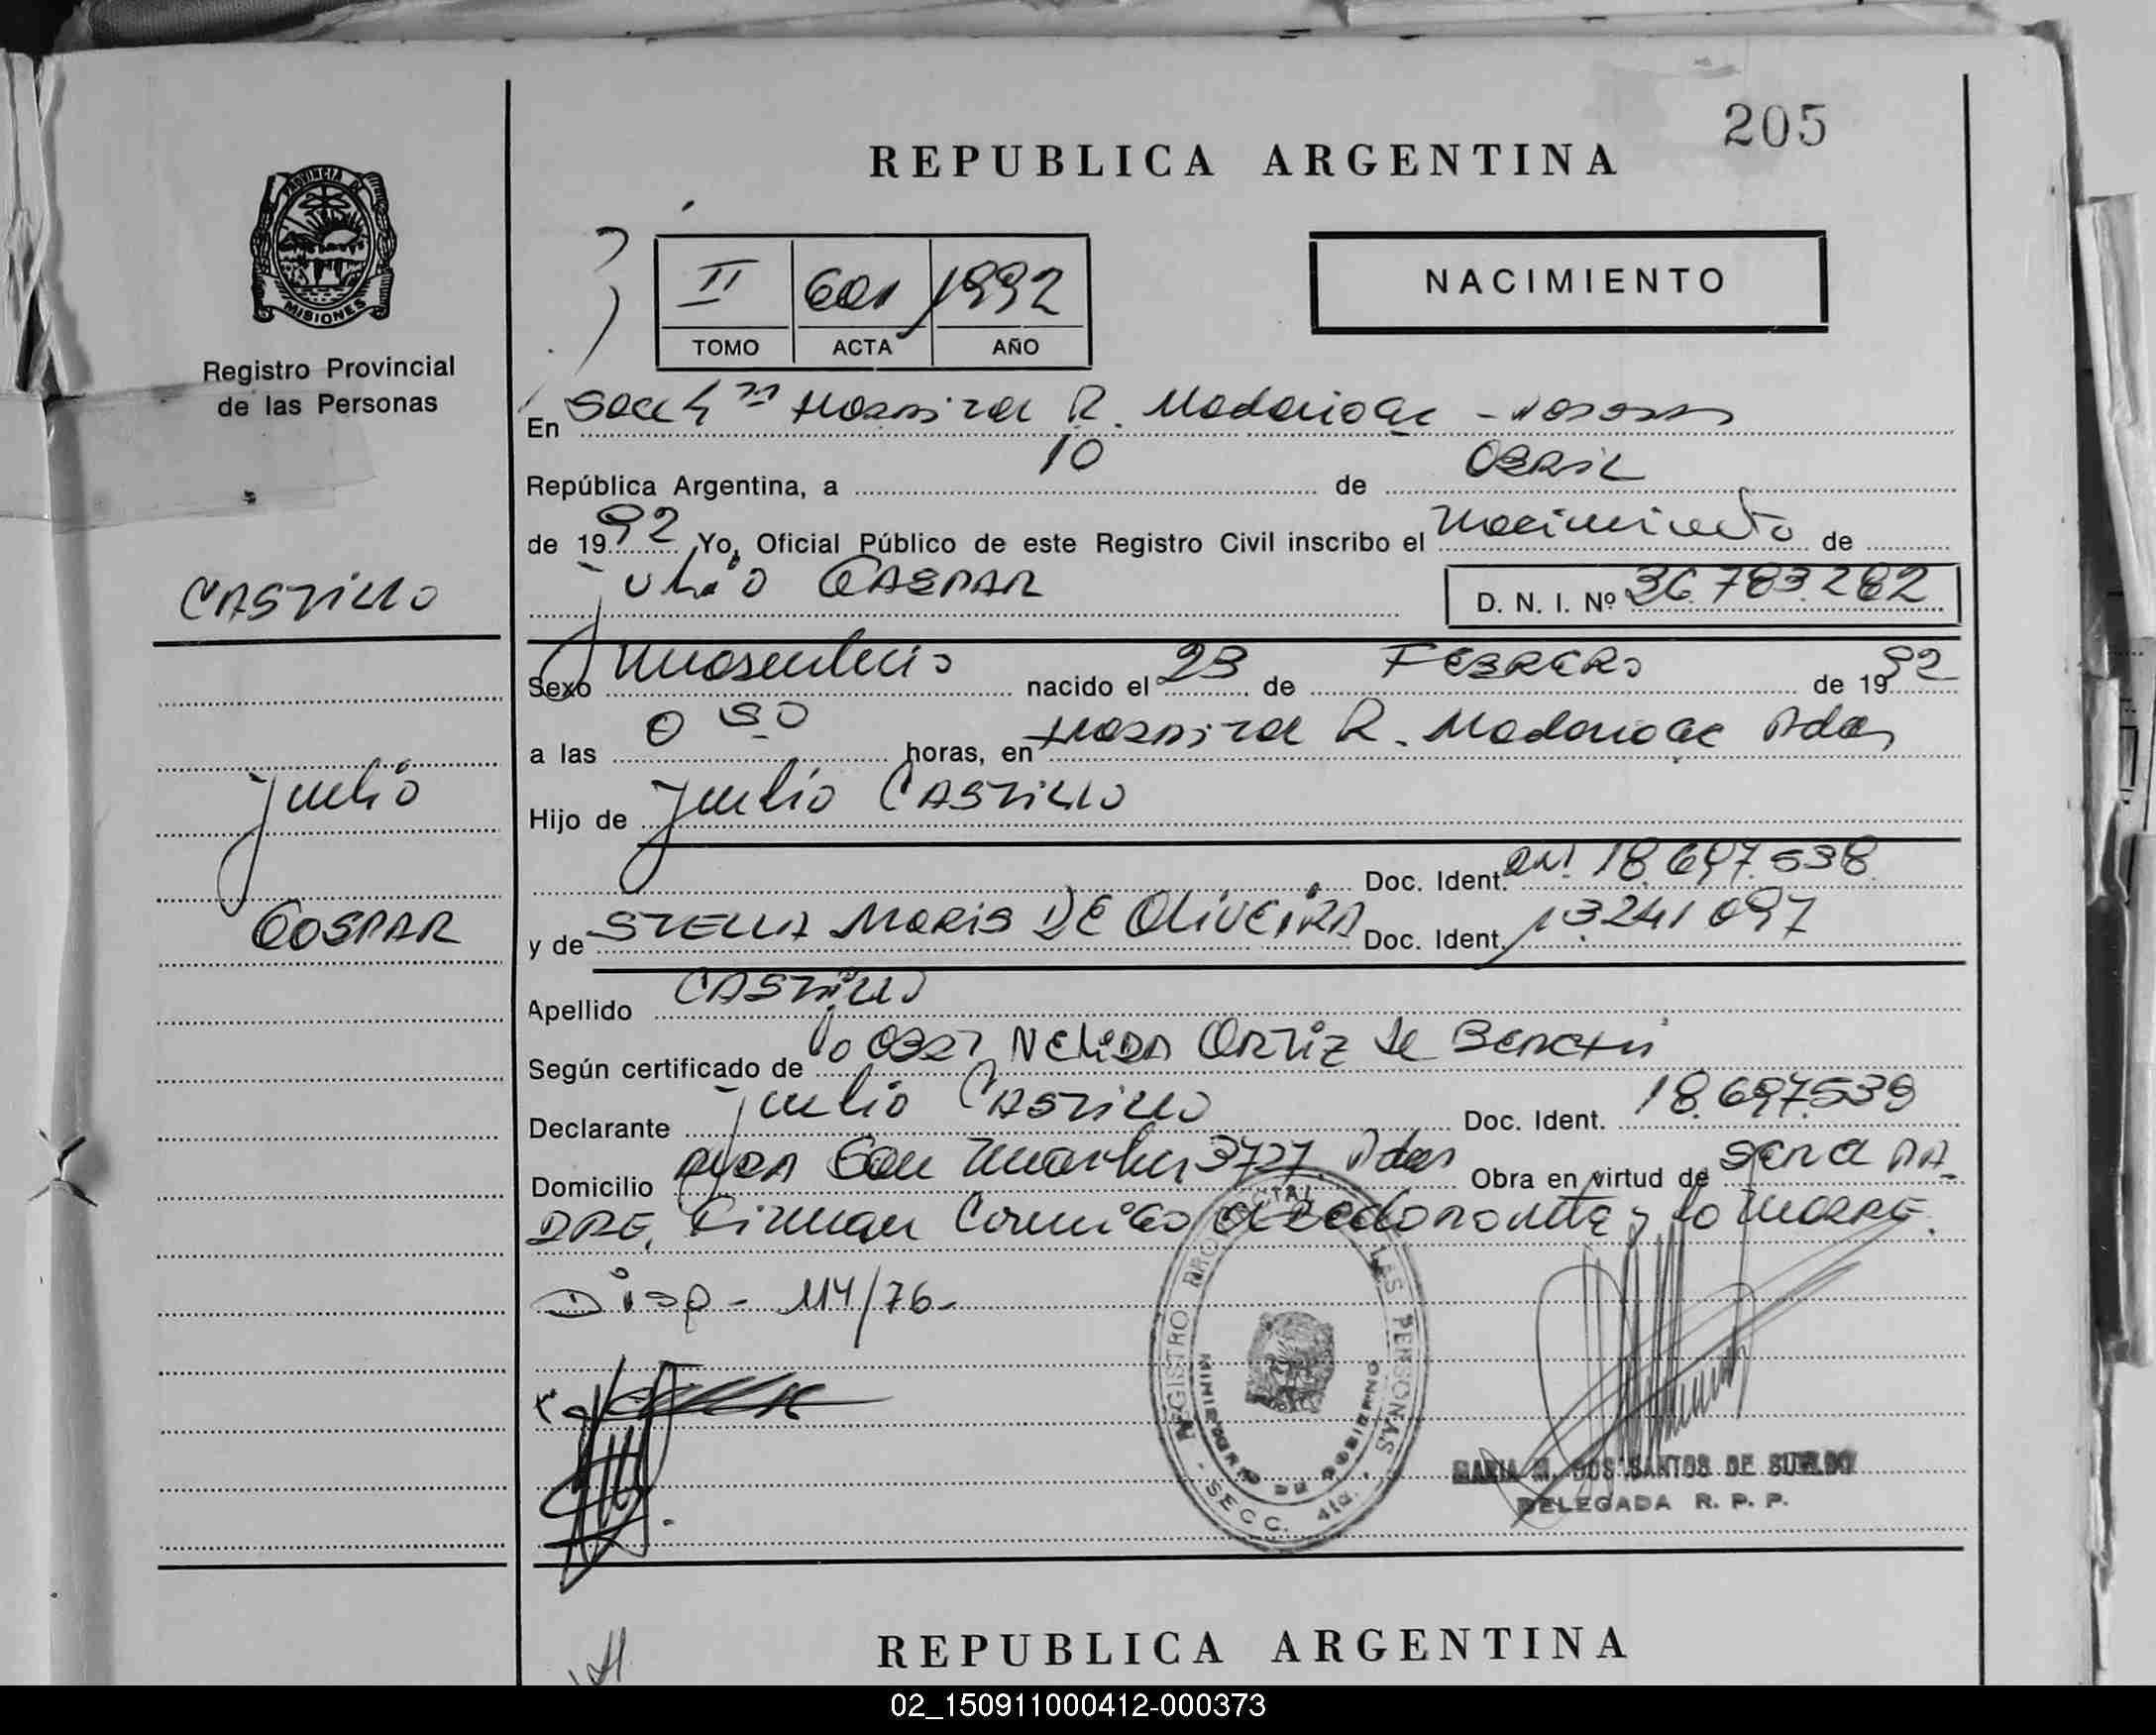 205
REPUBLICA ARGENTINA
PROVINCIA DE
MISIONES
Registro Provincial
de las Personas
NACIMIENTO
II 601 1992
TOMO ACTA AÑO
En Secc 4ta Hospital R. Madariaga - Posadas
República Argentina, a 10 de ABRIL
de 1992 Yo, Oficial Público de este Registro Civil inscribo el Nacimiento de
Julio GASPAR D. N. I. Nº 36.783.282
CASTILLO
Sexo masculino nacido el 23 de FEBRERO de 1992
a las 0 50 horas, en Hospital R. Madariaga Pdas
Julio
Hijo de Julio CASTILLO
Doc. Ident. DNI 18.697.538
GASPAR
y de STELLA MARIS DE OLIVEIRA Doc. Ident. 13241097
Apellido CASTILLO
Según certificado de la OBST NELIDA ORTIZ de
Declarante Julio CASTILLO Doc. Ident. 18.697.539
Domicilio AVDA San Martin 3727 Pdas Obra en virtud de ser el PA-
DRE, Firman Conmigo el declarante y la MADRE.
Disp - 114/76-
REGISTRO PROVINCIAL DE LAS PERSONAS
MINISTERIO DE GOBIERNO
- SECC. 4ta. -
MARIA M. DOS SANTOS DE SUELDO
DELEGADA R. P. P.
REPUBLICA ARGENTINA
02_150911000412-000373